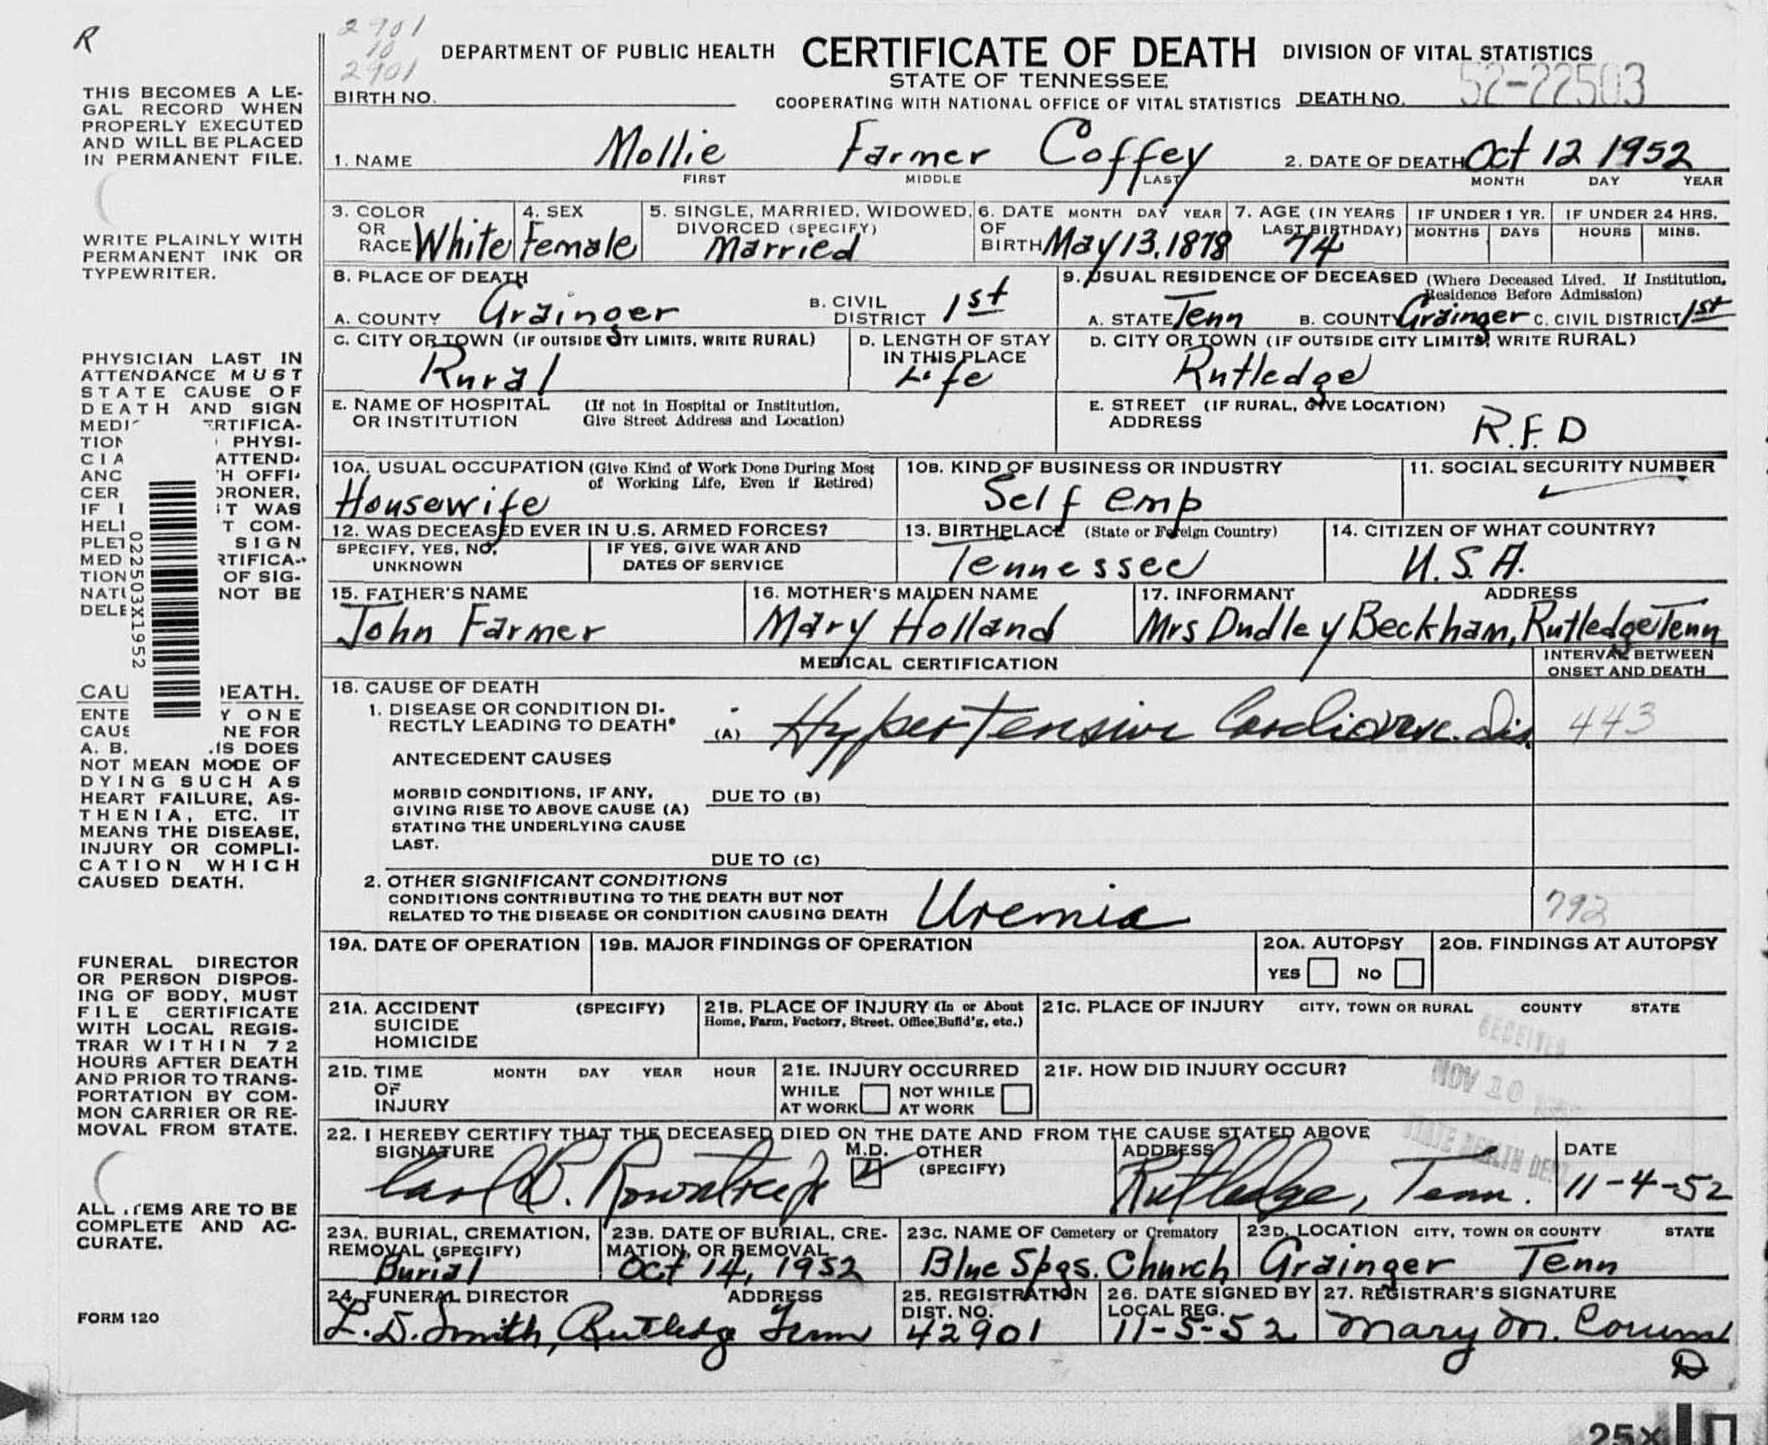 R
2901
10
2901
DEPARTMENT OF PUBLIC HEALTH CERTIFICATE OF DEATH DIVISION OF VITAL STATISTICS
STATE OF TENNESSEE
COOPERATING WITH NATIONAL OFFICE OF VITAL STATISTICS
BIRTH NO. DEATH NO. 52-22503
1. NAME Mollie Farmer Coffey 2. DATE OF DEATH Oct 12 1952
FIRST MIDDLE LAST MONTH DAY YEAR
3. COLOR OR RACE White
4. SEX Female
5. SINGLE, MARRIED, WIDOWED, DIVORCED (SPECIFY) Married
6. DATE OF BIRTH MONTH DAY YEAR May 13, 1878
7. AGE (IN YEARS LAST BIRTHDAY) 74
IF UNDER 1 YR. MONTHS DAYS
IF UNDER 24 HRS. HOURS MINS.
8. PLACE OF DEATH
A. COUNTY Grainger B. CIVIL DISTRICT 1st
9. USUAL RESIDENCE OF DECEASED (Where Deceased Lived. If Institution, Residence Before Admission)
A. STATE Tenn B. COUNTY Grainger C. CIVIL DISTRICT 1st
C. CITY OR TOWN (IF OUTSIDE CITY LIMITS, WRITE RURAL) Rural
D. LENGTH OF STAY IN THIS PLACE Life
D. CITY OR TOWN (IF OUTSIDE CITY LIMITS, WRITE RURAL) Rutledge
E. NAME OF HOSPITAL OR INSTITUTION (If not in Hospital or Institution, Give Street Address and Location)
E. STREET ADDRESS (IF RURAL, GIVE LOCATION) R.F.D
10A. USUAL OCCUPATION (Give Kind of Work Done During Most of Working Life, Even if Retired) Housewife
10B. KIND OF BUSINESS OR INDUSTRY Self emp
11. SOCIAL SECURITY NUMBER
12. WAS DECEASED EVER IN U.S. ARMED FORCES?
SPECIFY, YES, NO, UNKNOWN
IF YES, GIVE WAR AND DATES OF SERVICE
13. BIRTHPLACE (State or Foreign Country) Tennessee
14. CITIZEN OF WHAT COUNTRY? U.S.A.
15. FATHER'S NAME John Farmer
16. MOTHER'S MAIDEN NAME Mary Holland
17. INFORMANT ADDRESS Mrs Dudley Beckham, Rutledge Tenn
MEDICAL CERTIFICATION
INTERVAL BETWEEN ONSET AND DEATH
18. CAUSE OF DEATH
1. DISEASE OR CONDITION DIRECTLY LEADING TO DEATH* (A) Hypertensive Cardiovasc. dis. 443
ANTECEDENT CAUSES
MORBID CONDITIONS, IF ANY, GIVING RISE TO ABOVE CAUSE (A) STATING THE UNDERLYING CAUSE LAST.
DUE TO (B)
DUE TO (C)
2. OTHER SIGNIFICANT CONDITIONS
CONDITIONS CONTRIBUTING TO THE DEATH BUT NOT RELATED TO THE DISEASE OR CONDITION CAUSING DEATH Uremia 792
19A. DATE OF OPERATION
19B. MAJOR FINDINGS OF OPERATION
20A. AUTOPSY YES NO
20B. FINDINGS AT AUTOPSY
21A. ACCIDENT SUICIDE HOMICIDE (SPECIFY)
21B. PLACE OF INJURY (In or About Home, Farm, Factory, Street, Office, Build'g, etc.)
21C. PLACE OF INJURY CITY, TOWN OR RURAL COUNTY STATE
21D. TIME OF INJURY MONTH DAY YEAR HOUR
21E. INJURY OCCURRED WHILE AT WORK NOT WHILE AT WORK
21F. HOW DID INJURY OCCUR?
RECEIVED
NOV 10
STATE HEALTH DEPT
22. I HEREBY CERTIFY THAT THE DECEASED DIED ON THE DATE AND FROM THE CAUSE STATED ABOVE
SIGNATURE Carl B. Rowntree Jr M.D. OTHER (SPECIFY)
ADDRESS Rutledge, Tenn.
DATE 11-4-52
23A. BURIAL, CREMATION, REMOVAL (SPECIFY) Burial
23B. DATE OF BURIAL, CREMATION, OR REMOVAL Oct 14, 1952
23C. NAME OF Cemetery or Crematory Blue Spgs. Church
23D. LOCATION CITY, TOWN OR COUNTY STATE Grainger Tenn
24. FUNERAL DIRECTOR ADDRESS L. D. Smith, Rutledge Tenn
25. REGISTRATION DIST. NO. 42901
26. DATE SIGNED BY LOCAL REG. 11-5-52
27. REGISTRAR'S SIGNATURE Mary M.
D
THIS BECOMES A LE-
GAL RECORD WHEN
PROPERLY EXECUTED
AND WILL BE PLACED
IN PERMANENT FILE.
WRITE PLAINLY WITH
PERMANENT INK OR
TYPEWRITER.
PHYSICIAN LAST IN
ATTENDANCE MUST
STATE CAUSE OF
DEATH AND SIGN
022503X1952
NOT MEAN MODE OF
DYING SUCH AS
HEART FAILURE, AS-
THENIA, ETC. IT
MEANS THE DISEASE,
INJURY OR COMPLI-
CATION WHICH
CAUSED DEATH.
FUNERAL DIRECTOR
OR PERSON DISPOS-
ING OF BODY, MUST
FILE CERTIFICATE
WITH LOCAL REGIS-
TRAR WITHIN 72
HOURS AFTER DEATH
AND PRIOR TO TRANS-
PORTATION BY COM-
MON CARRIER OR RE-
MOVAL FROM STATE.
ALL ITEMS ARE TO BE
COMPLETE AND AC-
CURATE.
FORM 120
25X